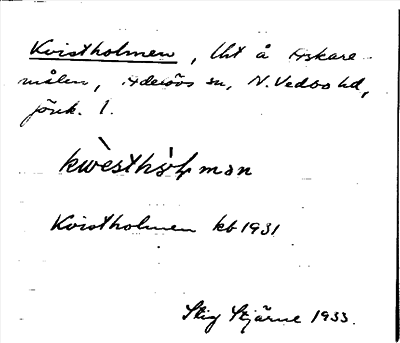 Kvistholmen, lht å Askare-
målen, Adelövs sn, N. Vedbo hd,
jönk. l.
kwèsthɵ̀ɫmən
Kvistholmen kb 1931
Stig Stjärne 1933.